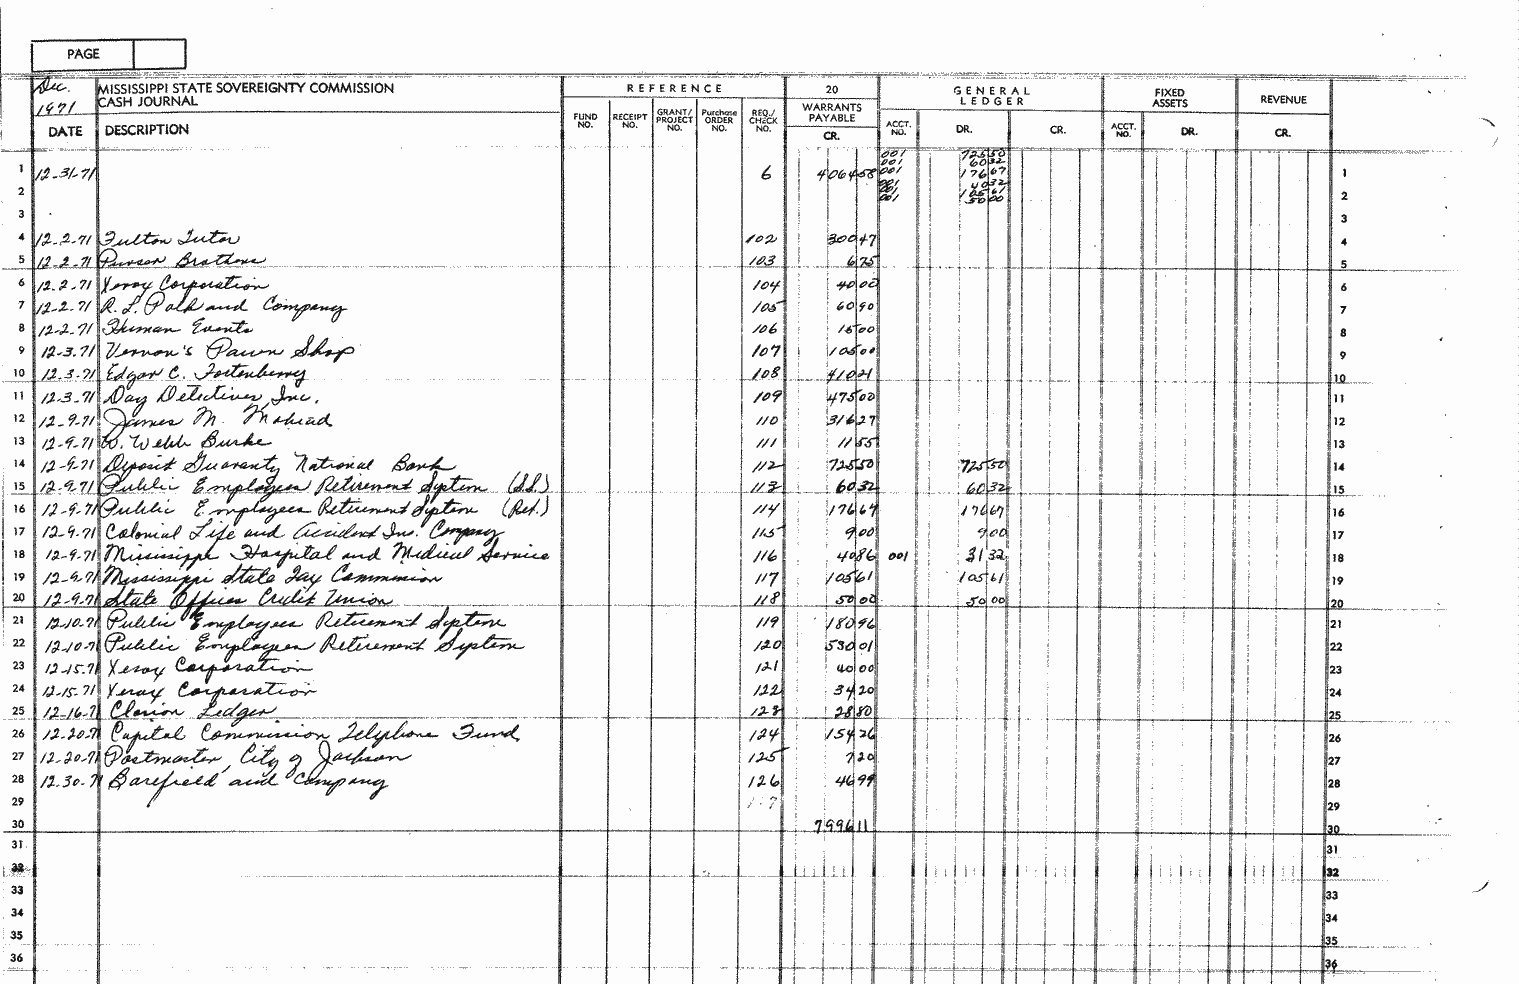 PAGE
Dec. 1971
MISSISSIPPI STATE SOVEREIGNTY COMMISSION
CASH JOURNAL
DATE DESCRIPTION
REFERENCE
FUND NO. RECEIPT NO. GRANT/PROJECT NO. Purchase ORDER NO. REQ./CHECK NO.
20 WARRANTS PAYABLE CR.
GENERAL LEDGER
ACCT. NO. DR. CR.
FIXED ASSETS
ACCT. NO. DR.
REVENUE
CR.
001 725 50
001 60 32
1 12-31-71 6 4064 58 001 176 67 1
001 40 32
001 105 61
2 001 50 00 2
3 3
4 12-2-71 Fulton Tutor 102 300 47 4
5 12-2-71 Purser Brothers 103 6 75 5
6 12-2-71 Xerox Corporation 104 40 00 6
7 12-2-71 R. L. Polk and Company 105 60 90 7
8 12-2-71 Human Events 106 15 00 8
9 12-3-71 Vernon's Pawn Shop 107 105 00 9
10 12-3-71 Edgar C. Fortenberry 108 410 21 10
11 12-3-71 Day Detectives, Inc. 109 475 00 11
12 12-9-71 James M. Mohead 110 316 27 12
13 12-9-71 W. Webb Burke 111 11 55 13
14 12-9-71 Deposit Guaranty National Bank 112 725 50 725 50 14
15 12-9-71 Public Employees Retirement System (S.S.) 113 60 32 60 32 15
16 12-9-71 Public Employees Retirement System (Ret.) 114 176 67 176 67 16
17 12-9-71 Colonial Life and Accident Ins. Company 115 9 00 9 00 17
18 12-9-71 Mississippi Hospital and Medical Service 116 40 86 001 31 32 18
19 12-9-71 Mississippi State Tax Commission 117 105 61 105 61 19
20 12-9-71 State Offices Credit Union 118 50 00 50 00 20
21 12-10-71 Public Employees Retirement System 119 180 96 21
22 12-10-71 Public Employees Retirement System 120 530 01 22
23 12-15-71 Xerox Corporation 121 40 00 23
24 12-15-71 Xerox Corporation 122 34 20 24
25 12-16-71 Clarion Ledger 123 28 80 25
26 12-20-71 Capital Commission Telephone Fund 124 154 26 26
27 12-20-71 Postmaster, City of Jackson 125 7 20 27
28 12-30-71 Barefield and Company 126 46 99 28
29 29
30 7996 11 30
31 31
32 32
33 33
34 34
35 35
36 36